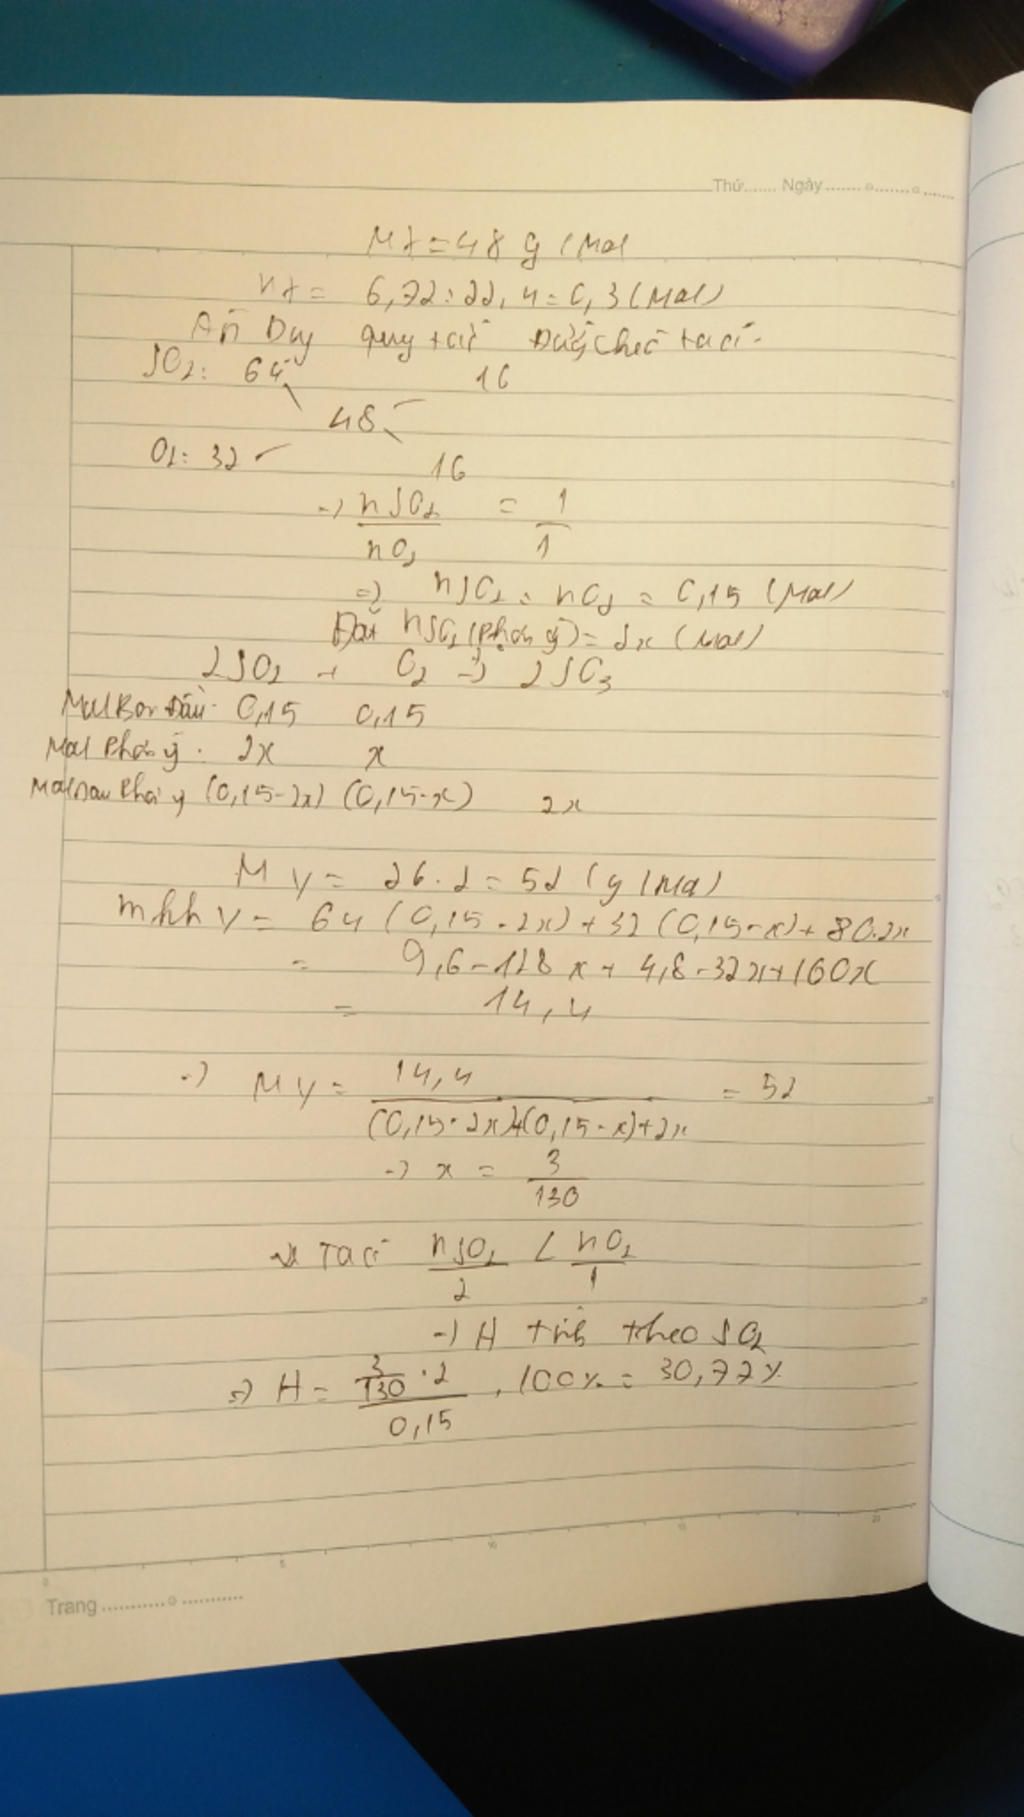 Thứ....... Ngày ........o........o.......
Mx = 48 g/mol
nx = 6,72:22,4 = 0,3 (mol)
Áp Dụng quy tắc Đường chéo ta có.
SO2: 64 16
48
O2: 32 16
=> nSO2/nO2 = 1/1
=> nSO2 = nO2 = 0,15 (mol)
Đặt nSO2 (Phản ứ) = 2x (mol)
2SO2 + O2 -> 2SO3
Mol Ban Đầu: 0,15 0,15
Mol Phản ứ: 2x x
Mol sau Phản ứ (0,15-2x) (0,15-x) 2x
My = 26.2 = 52 (g/mol)
mhh Y = 64 (0,15-2x) + 32 (0,15-x) + 80.2x
= 9,6-128x + 4,8-32x+160x
= 14,4
=> My = 14,4/((0,15-2x)+(0,15-x)+2x) = 52
=> x = 3/130
Ta có nSO2/2 < nO2/1
=> H tính theo SO2
=> H = (3/130 . 2)/0,15 . 100% = 30,77%
0 5 10 15 20
Trang ............o............